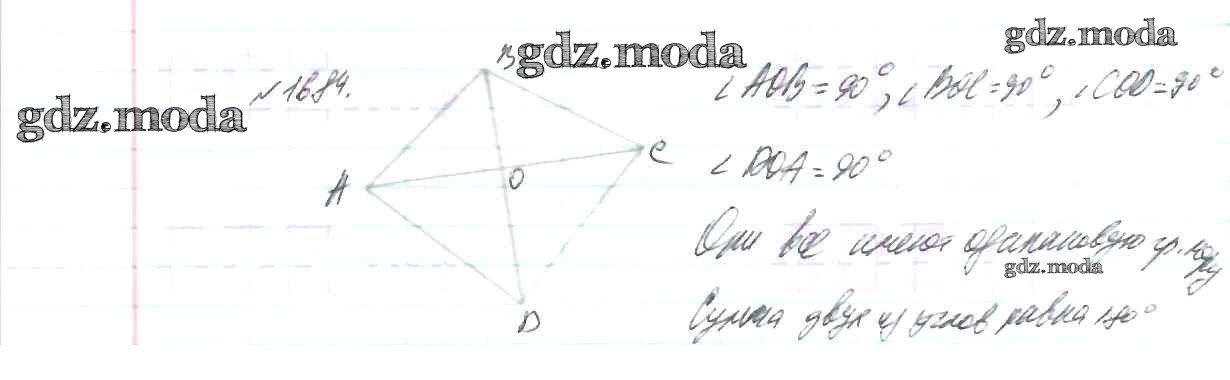 gdz.moda
gdz.moda
gdz.moda
№1684.
B
A
C
O
D
∠AOB = 90°, ∠BOC = 90°, ∠COD = 90°
∠DOA = 90°
Они все имеют одинаковую гр. меру
gdz.moda
Сумма двух из углов равна 180°